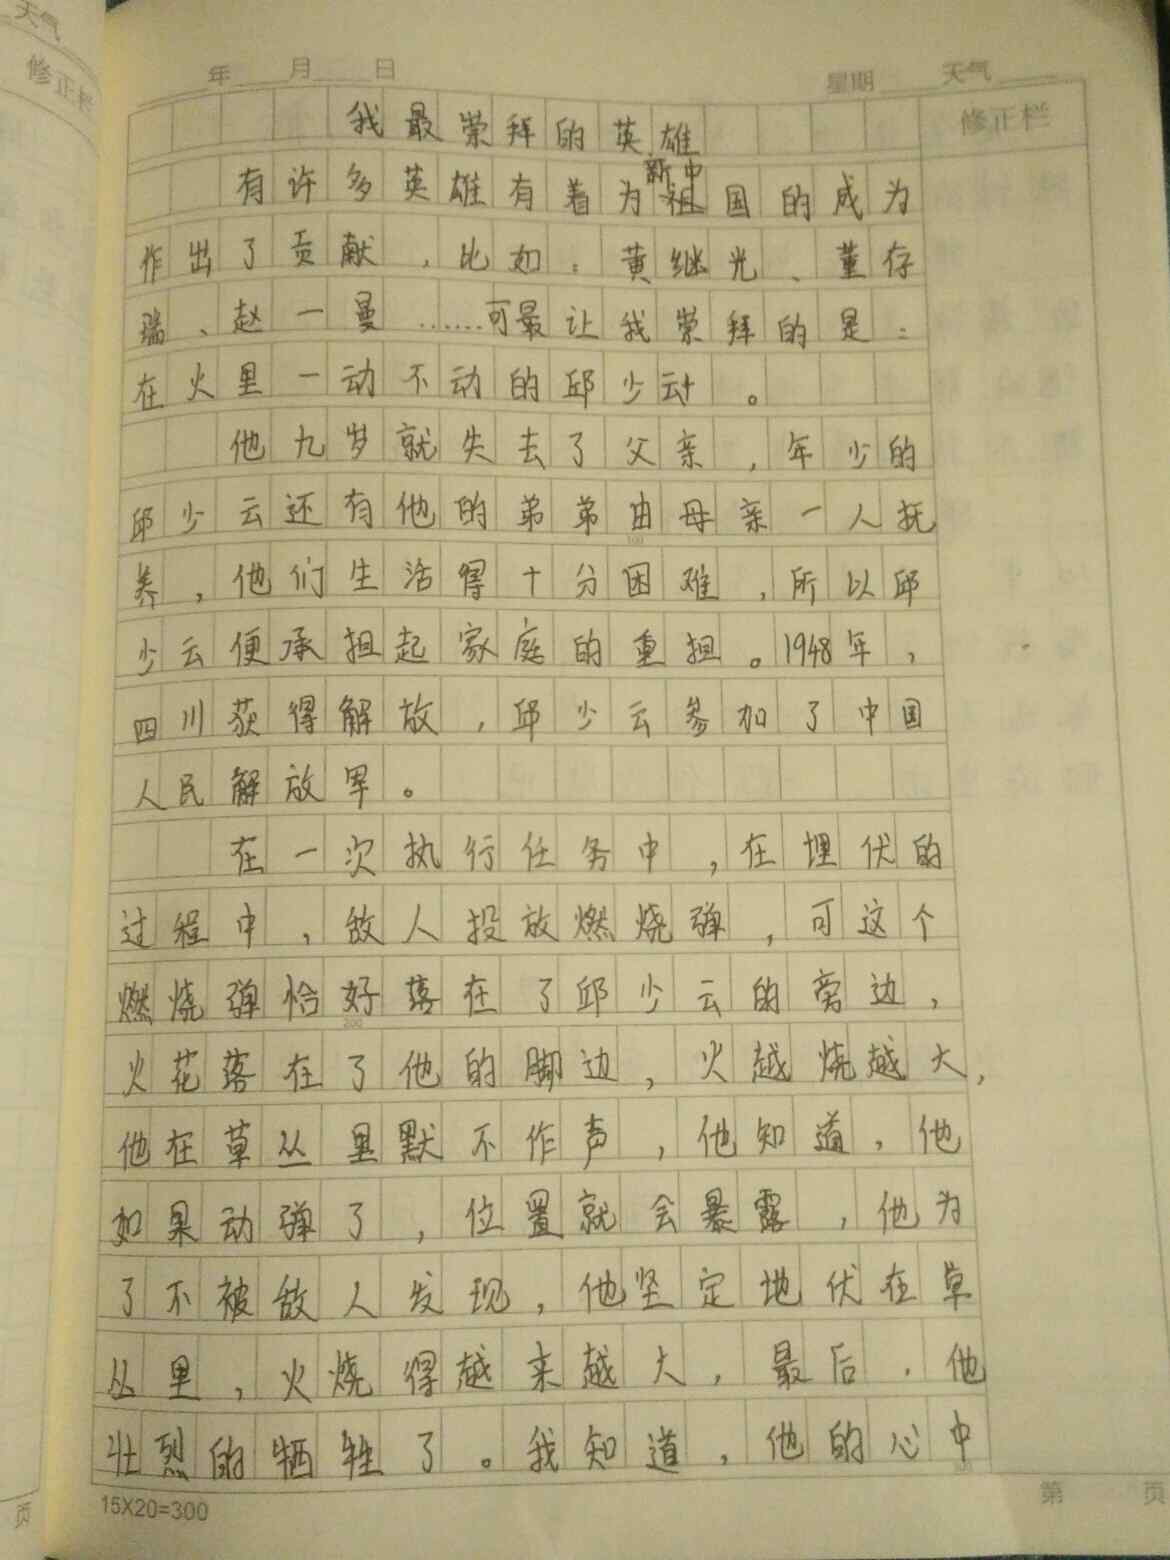 天气
修正栏
年 月 日 星期 天气
修正栏
我最崇拜的英雄
有许多英雄有着为新中国的成为
作出了贡献，比如：黄继光、董存
瑞、赵一曼……可最让我崇拜的是：
在火里一动不动的邱少云。
他九岁就失去了父亲，年少的
邱少云还有他的弟弟由母亲一人抚
养，他们生活得十分困难，所以邱
少云便承担起家庭的重担。1948年，
四川获得解放，邱少云参加了中国
人民解放军。
在一次执行任务中，在埋伏的
过程中，敌人投放燃烧弹，可这个
燃烧弹恰好落在了邱少云的旁边，
火花落在了他的脚边，火越烧越大，
他在草丛里默不作声，他知道，他
如果动弹了，位置就会暴露，他为
了不被敌人发现，他坚定地伏在草
丛里，火烧得越来越大，最后，他
壮烈的牺牲了。我知道，他的心中
15X20=300
第 页
页